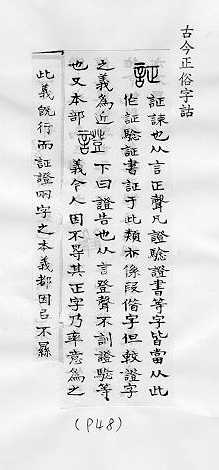 古今正俗字詁
証 証諫也从言正聲凡證驗證書等字皆當从此
作証驗証書証于此類亦係段借字但較證字
之義為近 證 下曰證告也从言登聲不訓證驗等
也又本部 義令人因不得其正字乃率意為之
此義旣行而証證兩字之本義都因㠯不㬎
(P48)